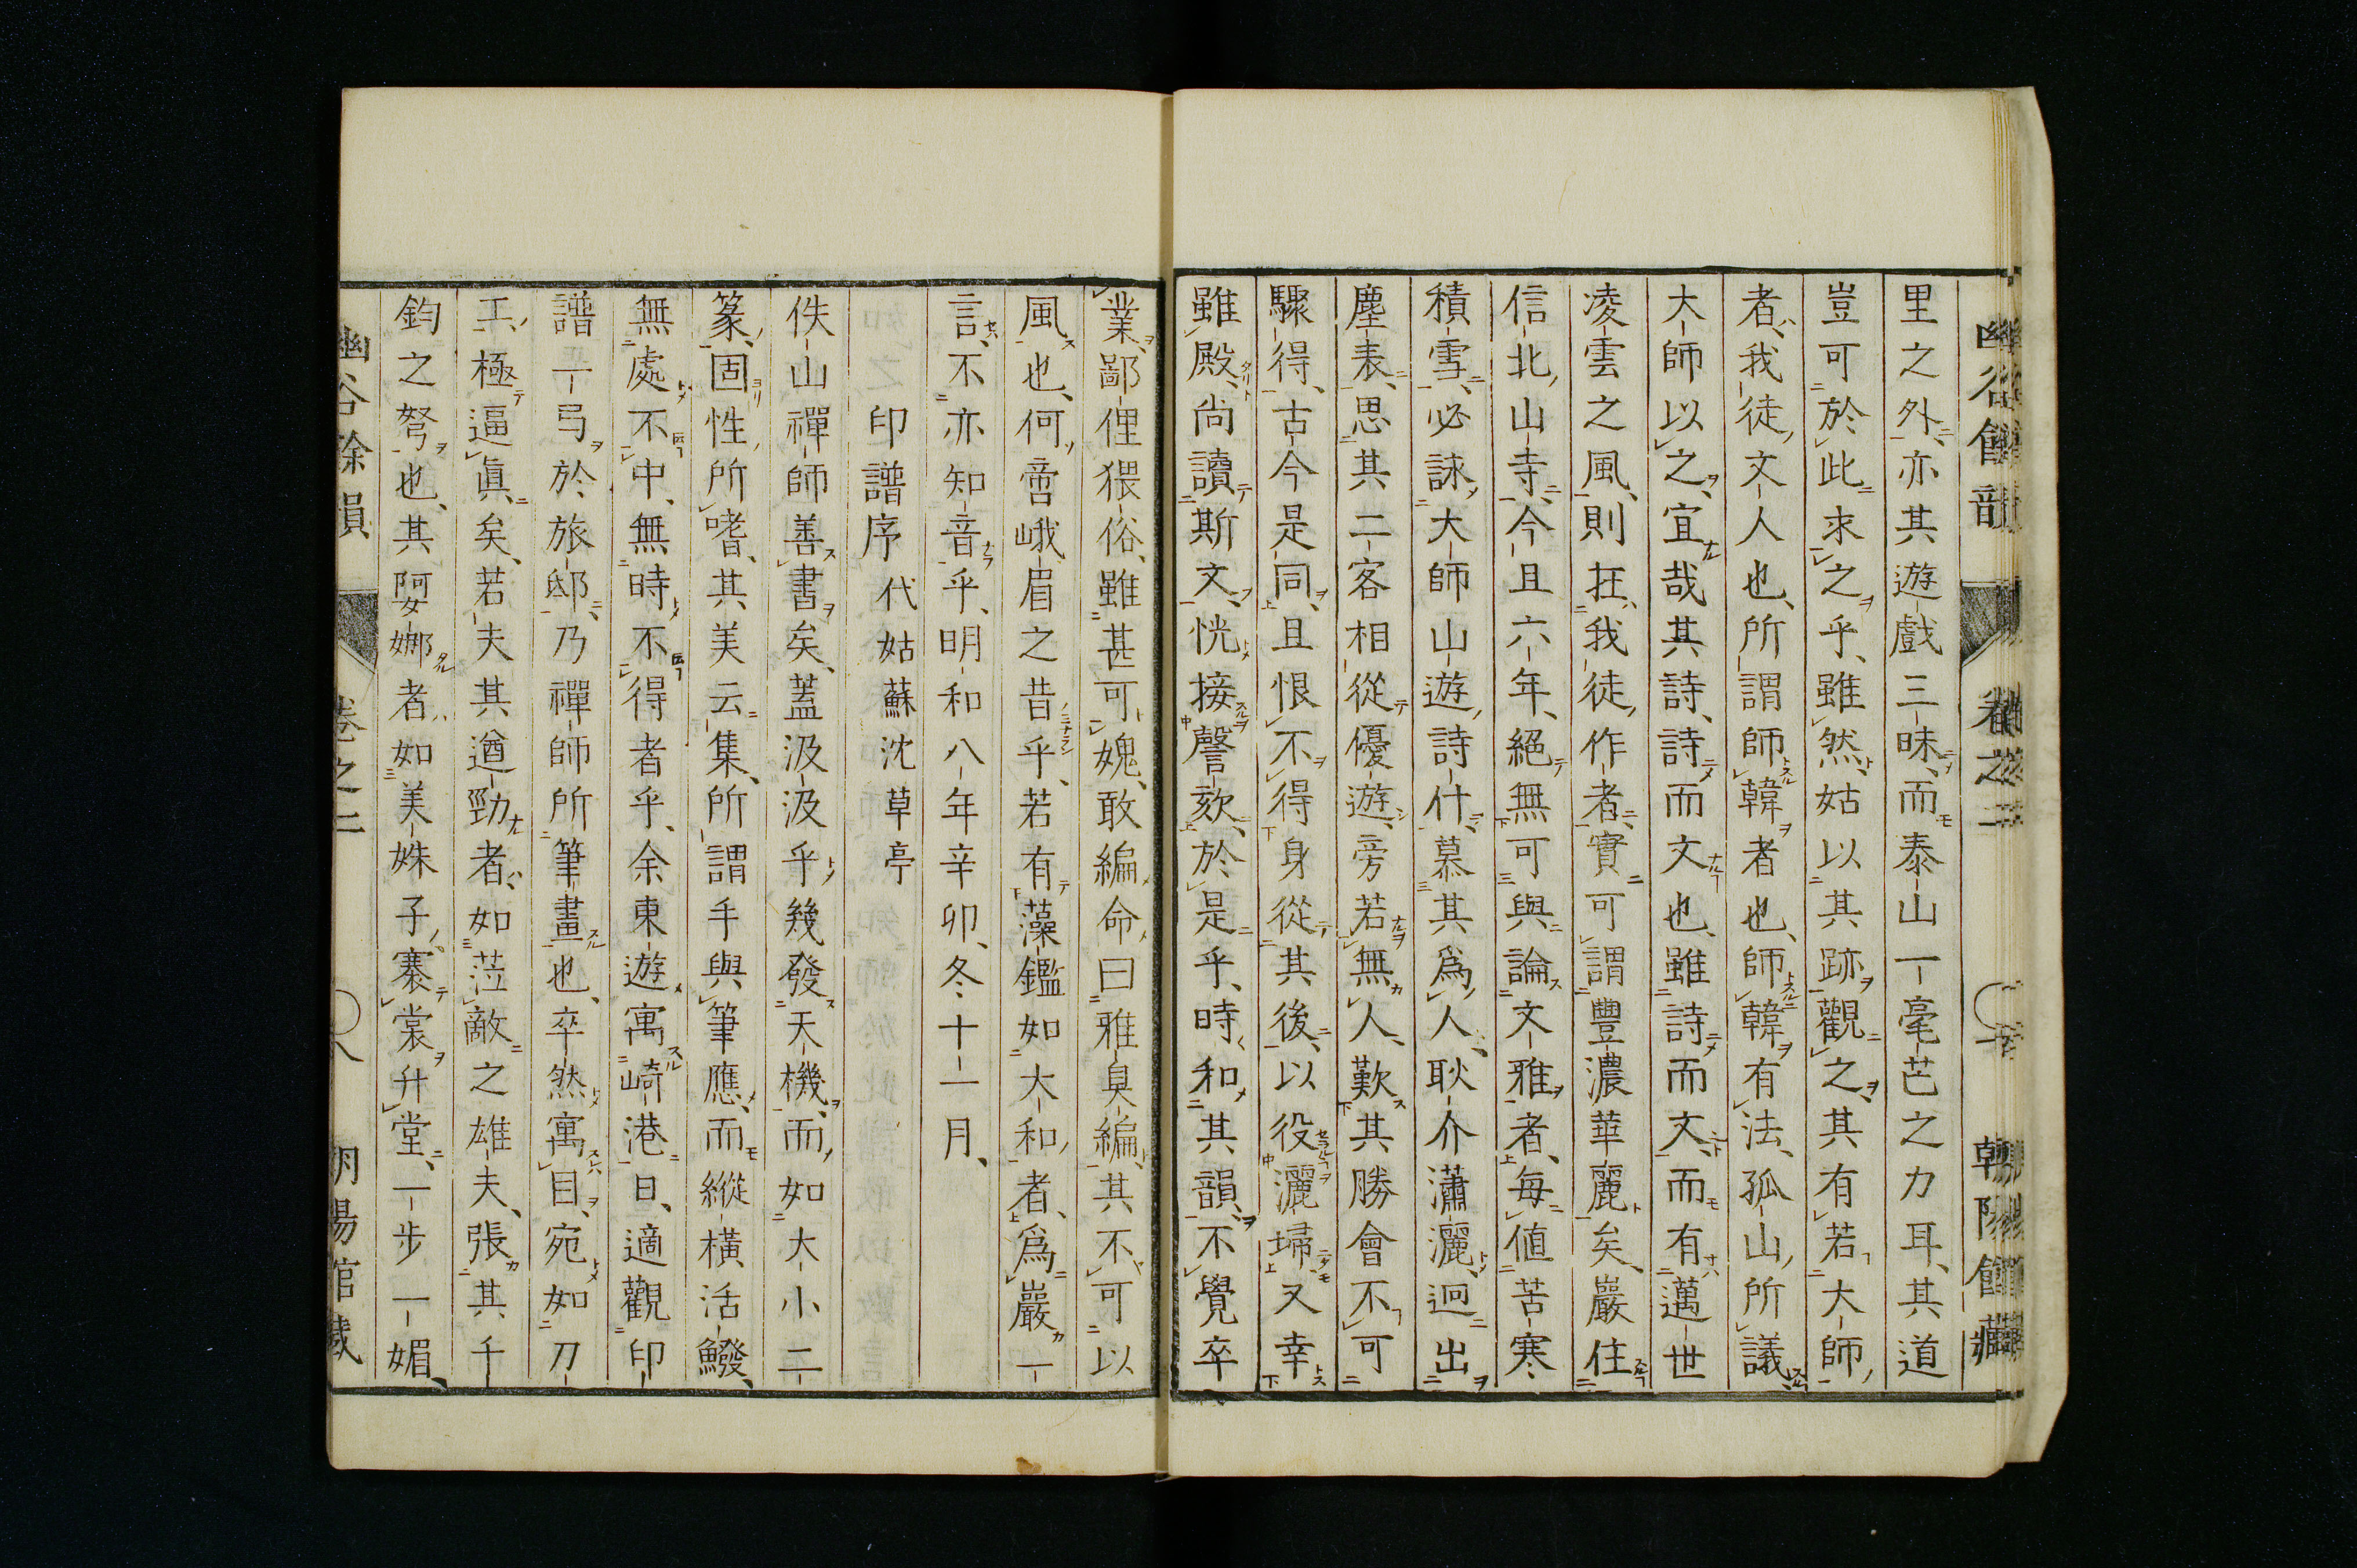 里之外、亦其遊戲三昧、而泰山一毫芒之力耳、其道
豈可於此求之乎、雖然、姑以其跡觀之、其有若大師
者、我徒文人也、所謂師韓者也、師韓有法、孤山所議
大師以之、宜哉其詩、詩而文也、雖詩而文、而有邁世
凌雲之風、則在我徒作者、實可謂豐濃華麗矣、巖住
信北山寺、今且六年、絕無可與論文雅者、每値苦寒
積雪、必詠大師山遊詩什、慕其爲人、耿介瀟灑、迥出
塵表、思其二客相從優遊、旁若無人、歎其勝會不可
驟得、古今是同、且恨不得身從其後、以役灑埽、又幸
雖殿、尚讀斯文、恍接謦欬、於是乎、時和其韻、不覺卒
業、鄙俚猥俗、雖甚可媿、敢編命曰雅臭編、其不可以
風也、何啻峨眉之昔乎、若有藻鑑如大和者、爲巖一
言、不亦知音乎、明和八年辛卯、冬十一月、
印譜序 代姑蘇沈草亭
佚山禪師善書矣、蓋汲汲乎幾發天機、而如大小二
篆、固性所嗜、其美云集、所謂手與筆應、而縱橫活鱍、
無處不中、無時不得者乎、余東遊寓崎港日、適觀印
譜一弓於旅邸、乃禪師所筆畫也、卒然寓目、宛如刀
工、極逼眞矣、若夫其遒勁者、如莅敵之雄夫、張其千
鈞之弩也、其婀娜者、如美姝子、寨裳升堂、一步一媚、
幽谷餘韻 卷之二 八 朝陽館藏